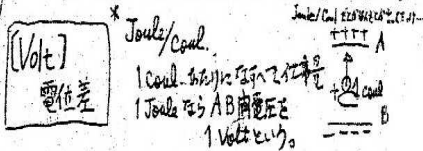 [Volt]
電位差
* Joule/Coul.
1 Coul. あたりになすべき仕事が
1 Joule なら AB 間電圧を
1 Volt という。
Joule/Coul
++++ A
+ 1 Coul
B
----